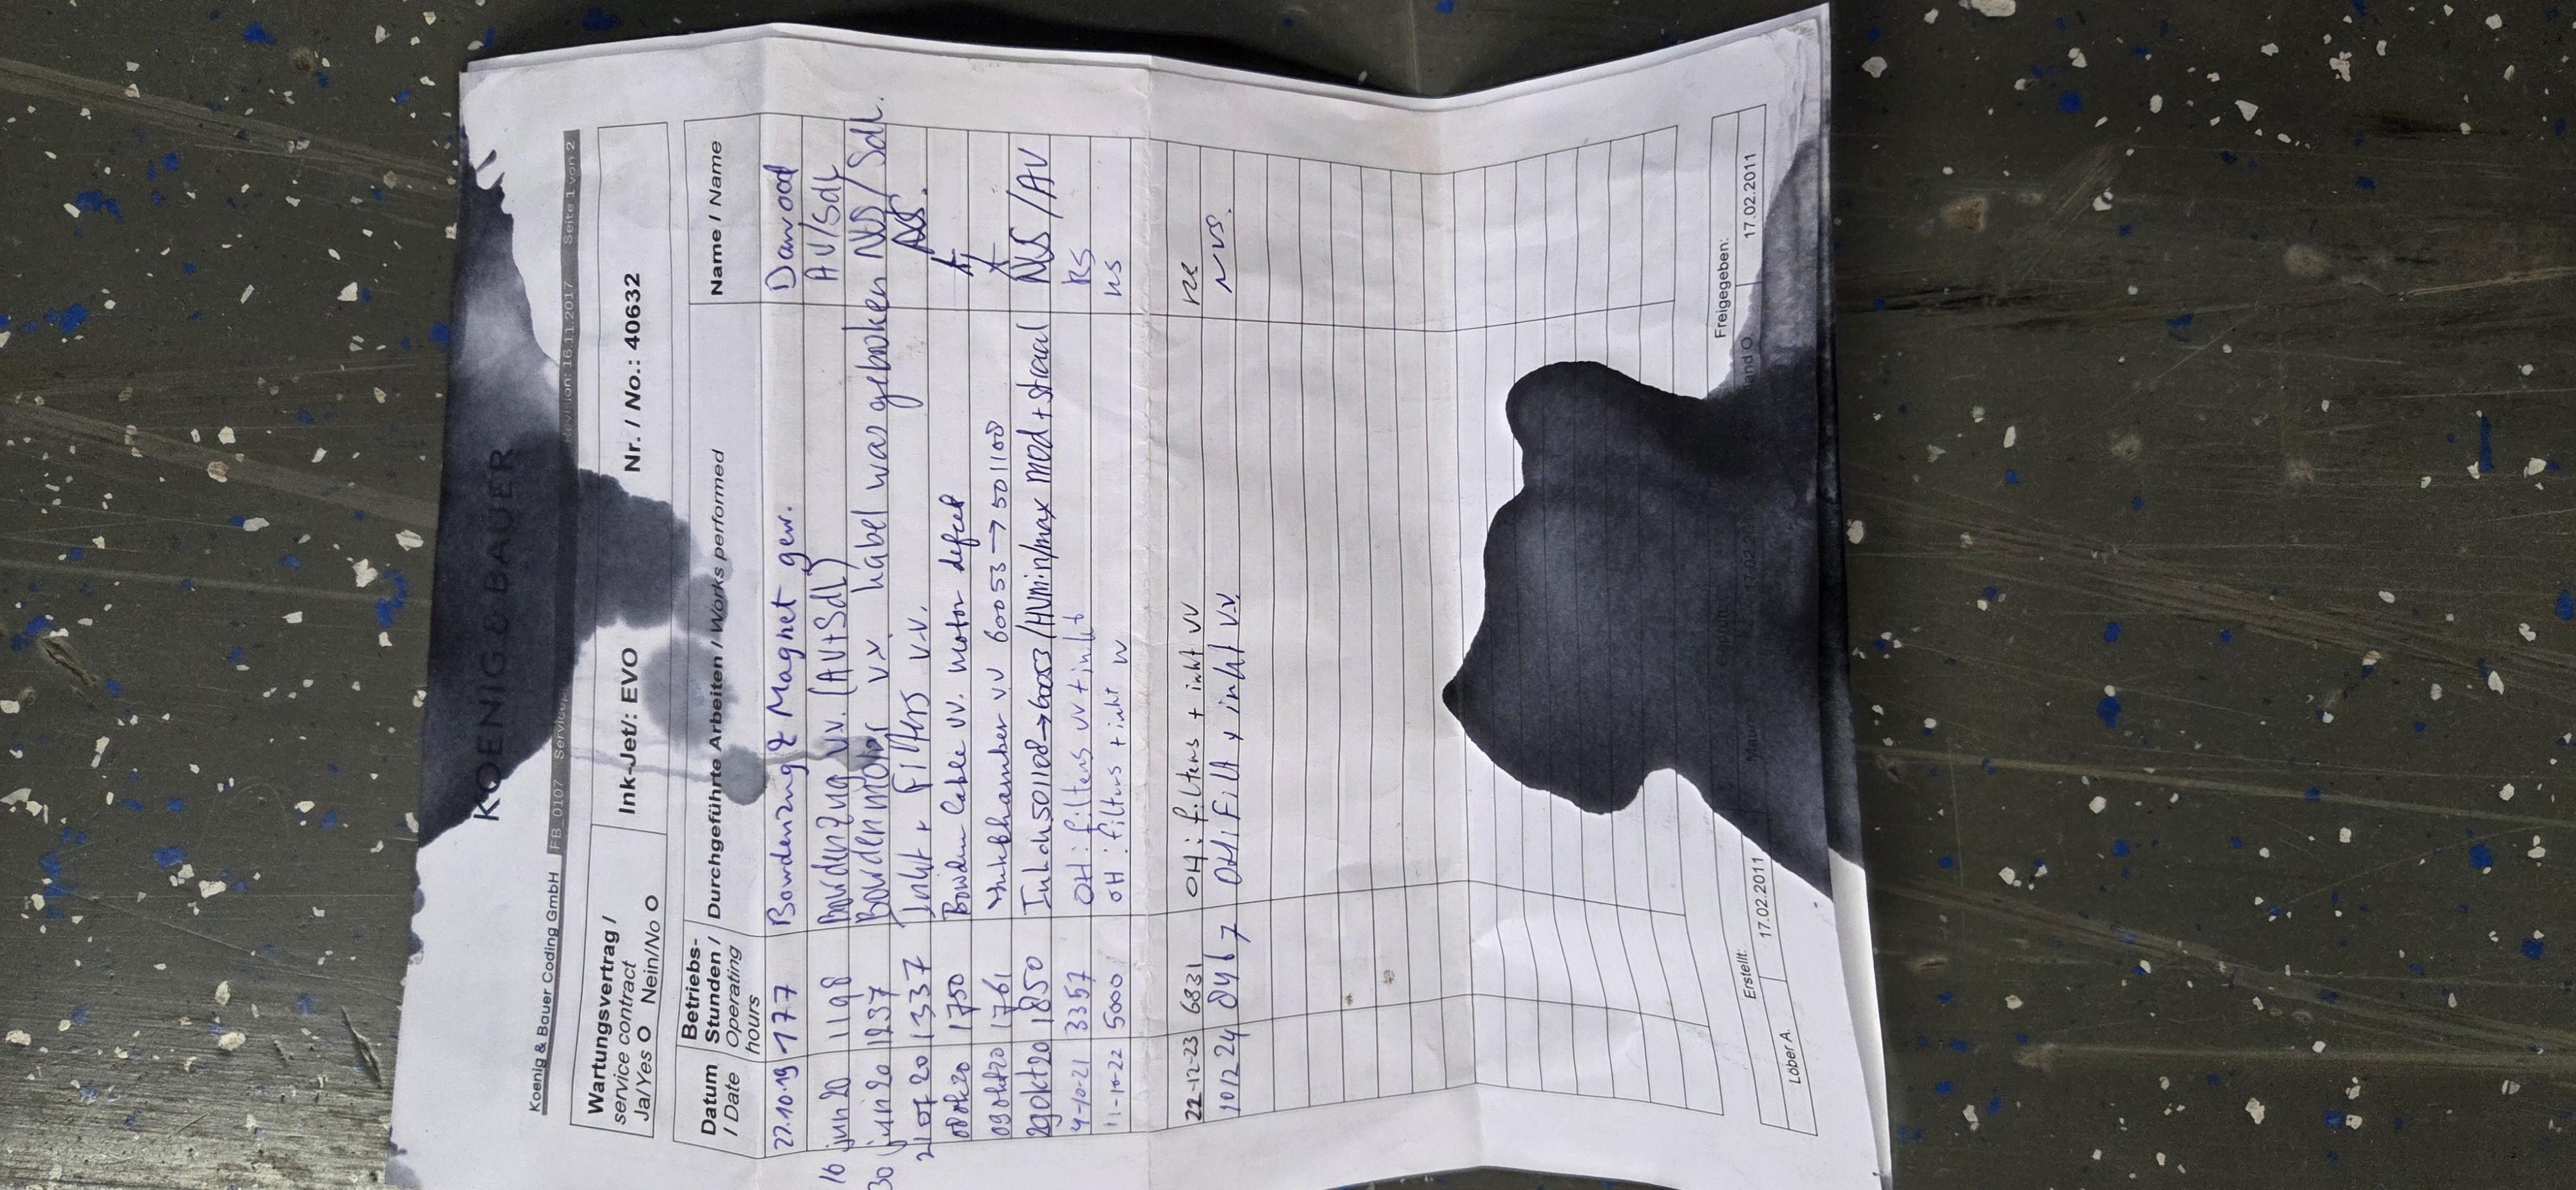 KOENIG & BAUER
Koenig & Bauer Coding GmbH FB_0107 Revision: 16.11.2017 Seite 1 von 2
Wartungsvertrag /
service contract
Ja/Yes O Nein/No O
Ink-Jet/: EVO Nr. / No.: 40632
Datum / Date
Betriebs-Stunden / Operating hours
Durchgeführte Arbeiten / Works performed
Name / Name
22.10.19 177 Bowdenzug & Magnet gew. Danvood
16 jun 20 1198 Bowdenzug vv. (AV+Sdl) AV/Sdl
30 jun 20 1237 Bowdenmotor vv kabel was gebroken NVS/Sdl.
21 07 20 1337 Inkt + Filters v.v. NVS.
08 okt 20 1750 Bowden Cable vv. motor defect
09 okt 20 1761 Inktkhamber vv 60053 → 501100
29 okt 20 1850 501100 → 60053 /HVmin/max mod + straal NVS/AV
4-10-21 3357 OH: filters vv + inkt RS
11-10-22 5000 OH: filters + inkt vv RS
22-12-23 6831 OH: filters + inkt vv
10 12 24 8467 OH: Filt + inkt v.v. NVS.
Erstellt: Freigegeben:
Löber A. 17.02.2011 17.02.2011